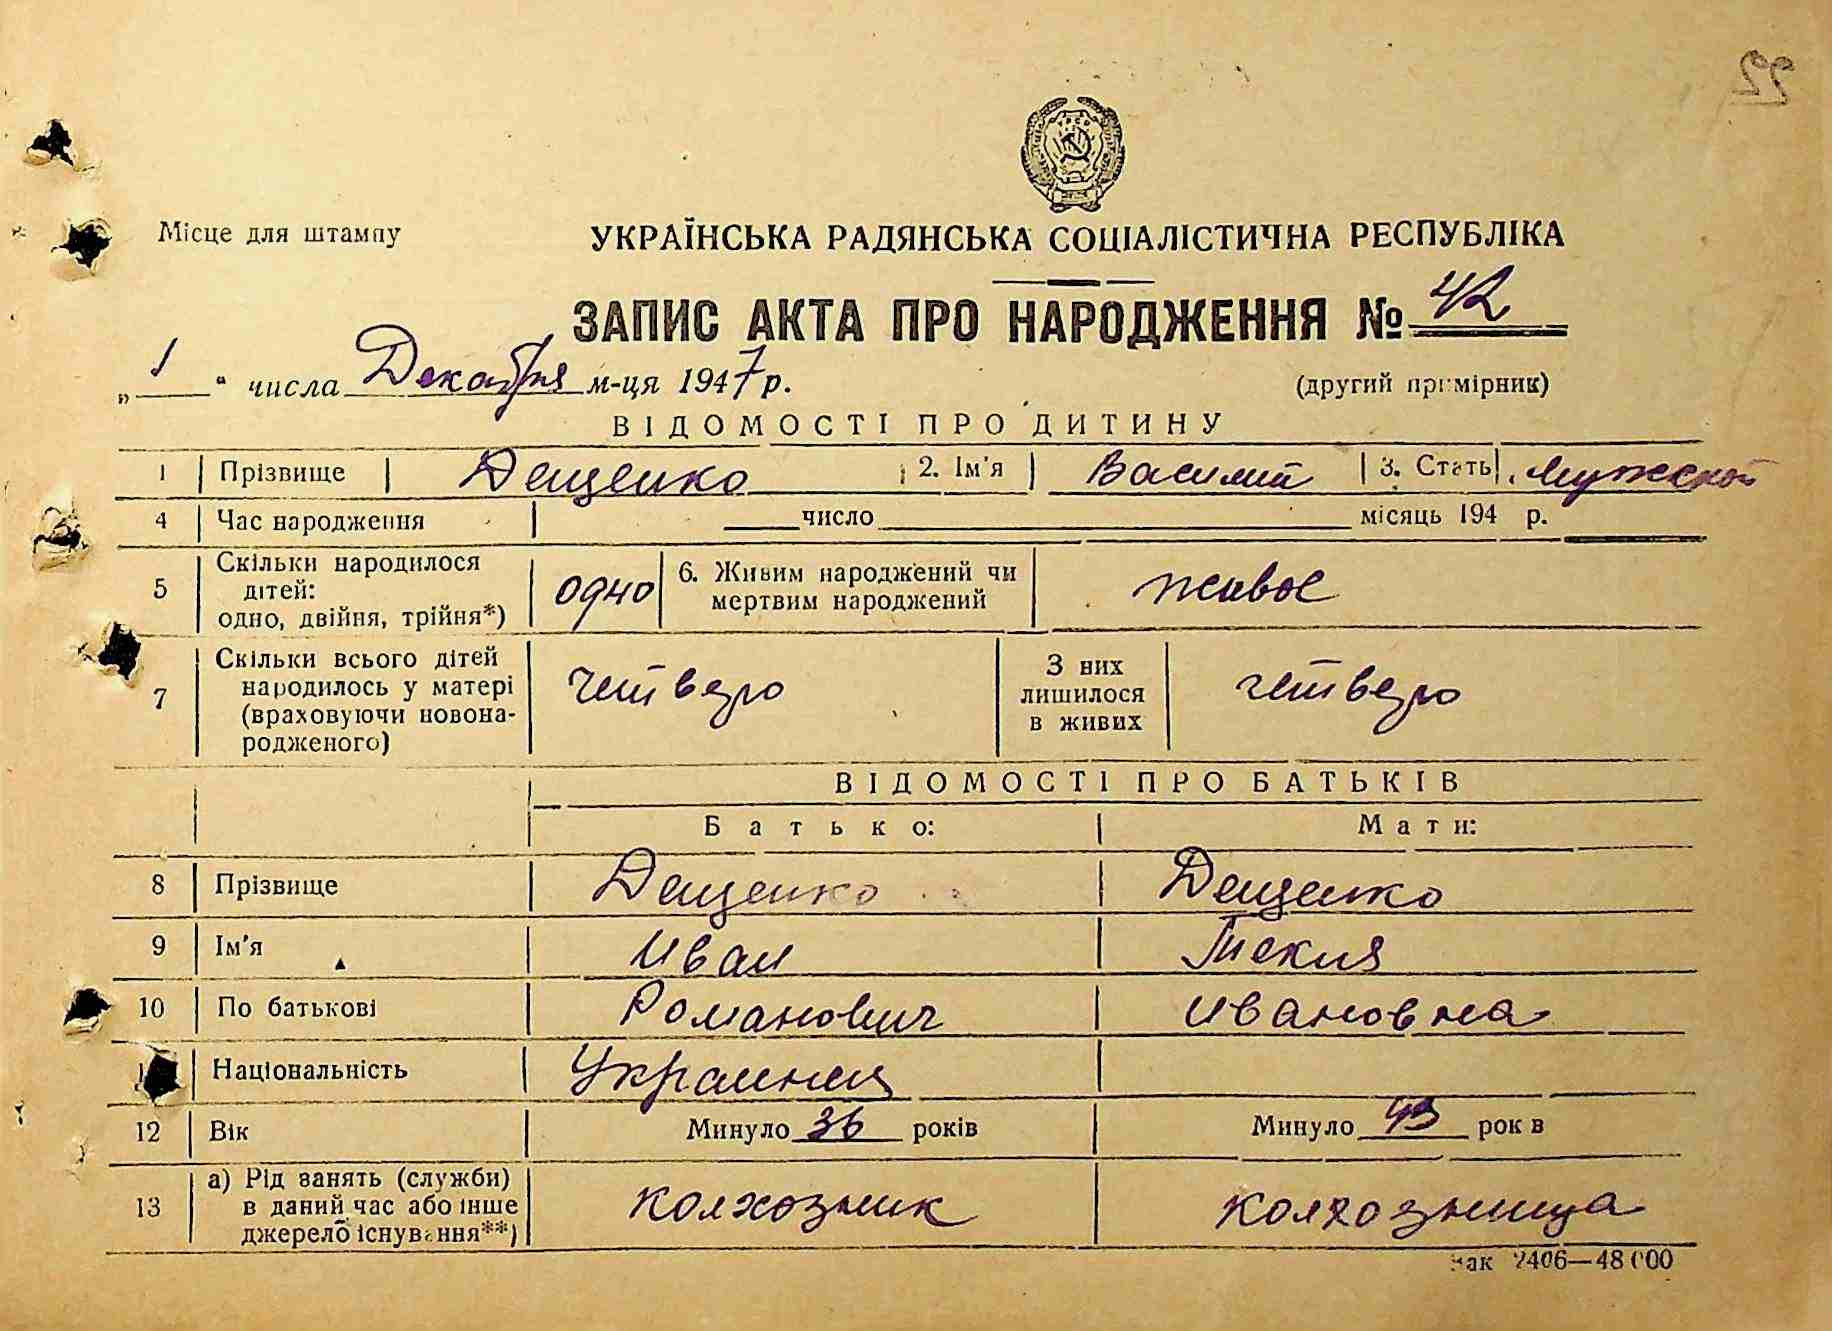 22
УРСР
Місце для штампу
УКРАЇНСЬКА РАДЯНСЬКА СОЦІАЛІСТИЧНА РЕСПУБЛІКА
ЗАПИС АКТА ПРО НАРОДЖЕННЯ № 42
„ 1 “ числа Декабря м-ця 1947 р. (другий примірник)
ВІДОМОСТІ ПРО ДИТИНУ
1 Прізвище Дещенко 2. Ім'я Василий 3. Стать Мужской
4 Час народження число місяць 194 р.
5 Скільки народилося дітей: одно, двійня, трійня*) одно 6. Живим народжений чи мертвим народжений живое
7 Скільки всього дітей народилось у матері (враховуючи новонародженого) четверо З них лишилося в живих четверо
ВІДОМОСТІ ПРО БАТЬКІВ
Батько: Мати:
8 Прізвище Дещенко Дещенко
9 Ім'я Иван Текля
10 По батькові Романович Ивановна
11 Національність
12 Вік Минуло 36 років Минуло 43 років
13 а) Рід занять (служби) в даний час або інше джерело існування**) колхозник колхозница
Зак 2406—48000